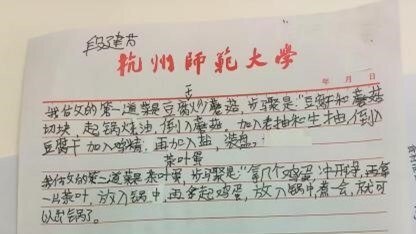 段建芳
杭州師範大學
年 月 日
我给做的第一道菜是豆腐干炒蘑菇，步骤是：“豆腐干和蘑菇
切块，起锅烧油，倒入蘑菇，加入老抽和生抽，倒入
豆腐干 加入鸡精，再加入盐，装盘。
茶叶蛋
我给做的第二道菜是茶叶蛋，步骤是：“拿几个鸡蛋 冲开
一片茶叶，放入锅中，再拿起鸡蛋，放入锅中煮一会，就可
以出锅了。